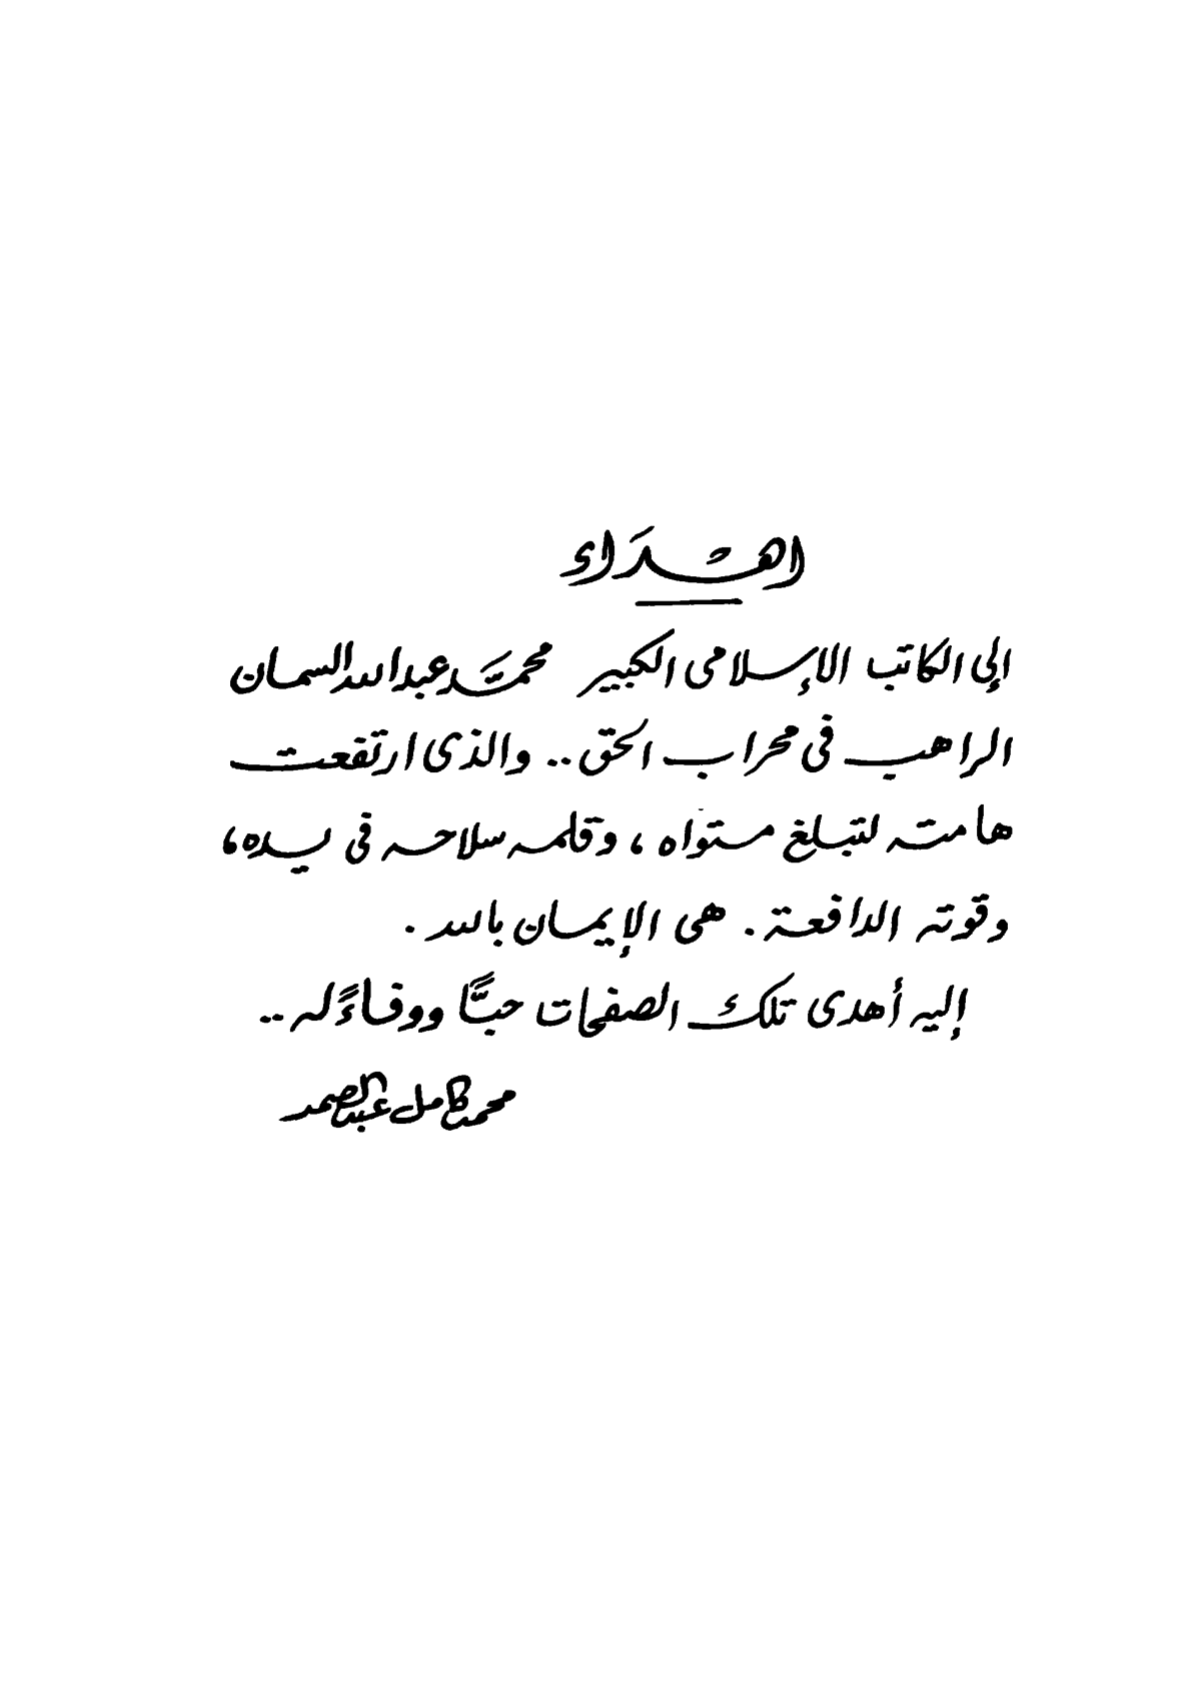 اهداء
إلى الكاتب الإسلامى الكبير محمد عبد الله السمان
الراهب فى محراب الحق .. والذى ارتفعت
هامته لتبلغ مستواه ، وقلمه سلاحه فى يده ،
وقوته الدافعة . هى الإيمان بالله .
إليه أهدى تلك الصفحات حبًّا ووفاءً له ..
محمد كامل عبد الصمد